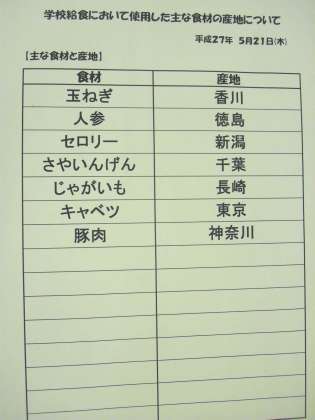 学校給食において使用した主な食材の産地について
平成27年 5月21日(木)
【主な食材と産地】
食材 産地
玉ねぎ 香川
人参 徳島
セロリー 新潟
さやいんげん 千葉
じゃがいも 長崎
キャベツ 東京
豚肉 神奈川